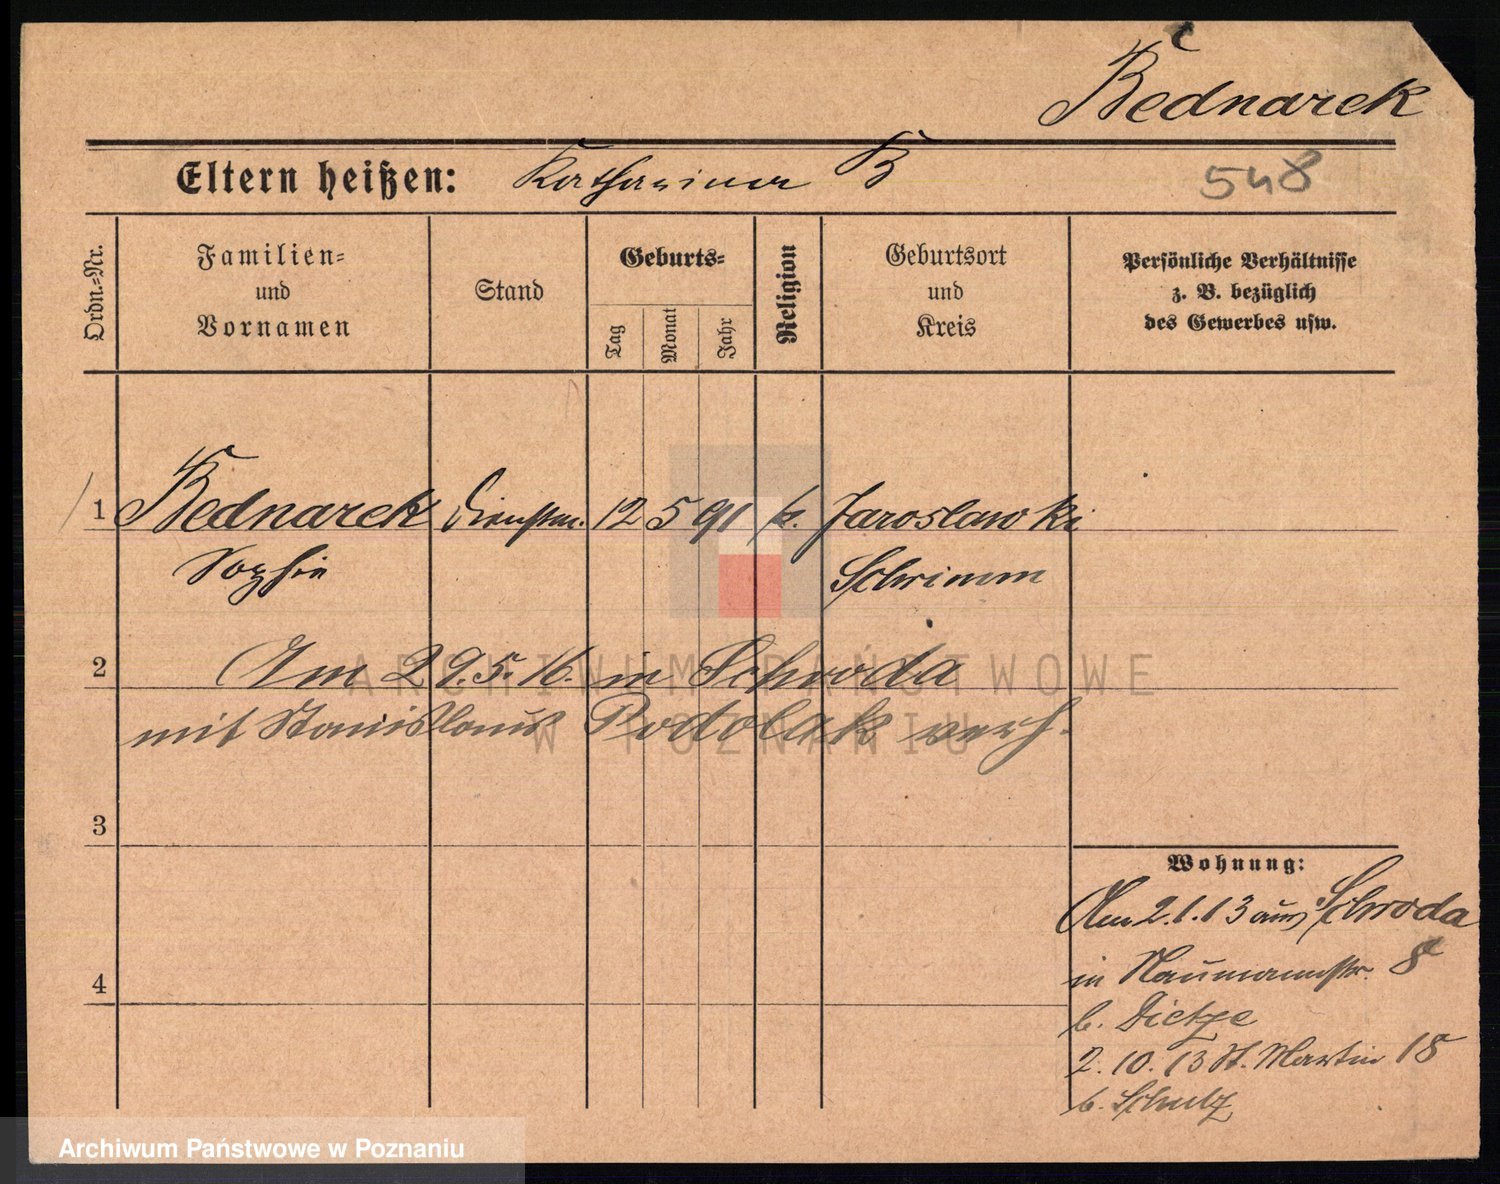 Bednarek
Eltern heißen: Katharina B
548
Ordn.-Nr.
Familien-
und
Vornamen
Stand
Geburts-
Tag
Monat
Jahr
Religion
Geburtsort
und
Kreis
Persönliche Verhältnisse
z. B. bezüglich
des Gewerbes usw.
1 Bednarek Dienstm. 12 5 91 k. Jaroslawki
Sophie Schrimm
2 Am 29.5.16. in Schroda
mit Stanislaus Podolak verh.
3
4
Wohnung:
Am 2.1.13 aus Schroda
in Naumannstr. 8
b. Dietze
2.10.13 St. Martin 18
b. Schulz
ARCHIWUM PAŃSTWOWE
W POZNANIU
Archiwum Państwowe w Poznaniu